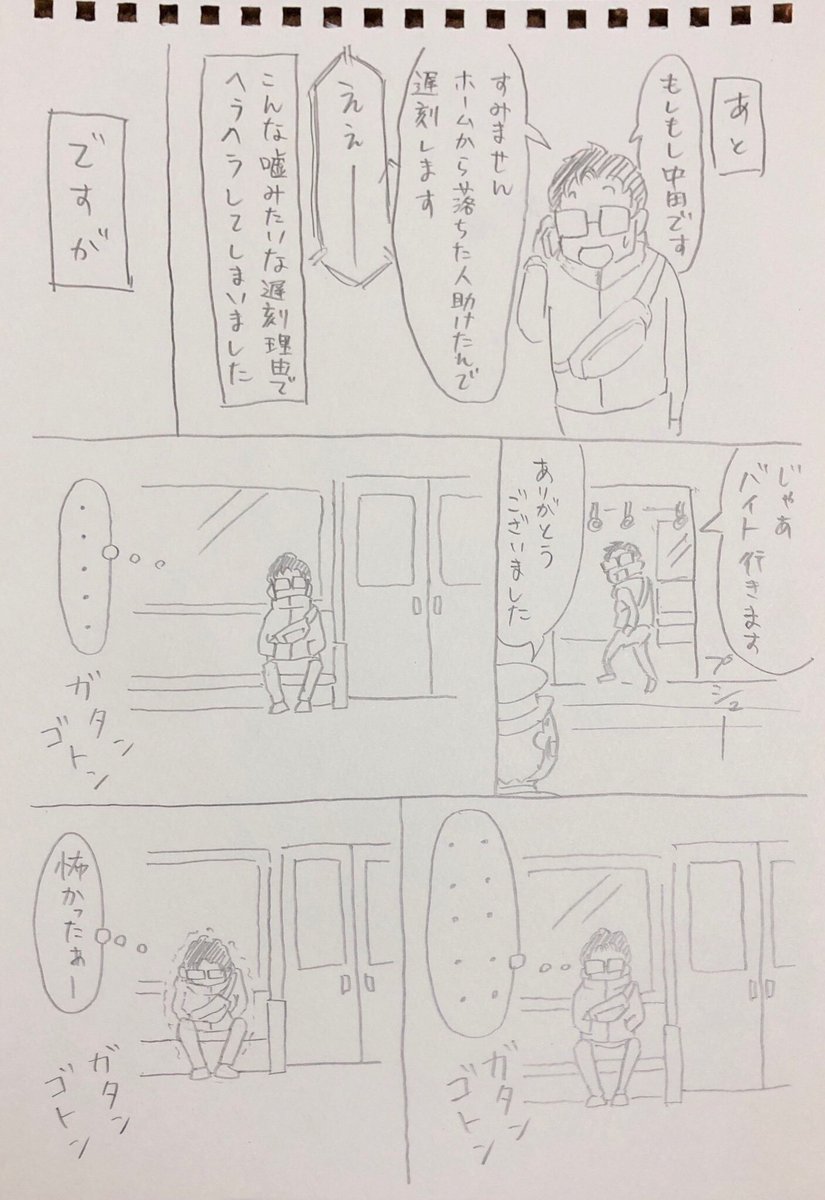 あと
もしもし中田です
すみません
ホームから落ちた人助けたんで
遅刻します
ええー
こんな嘘みたいな遅刻理由で
ヘラヘラしてしまいました
ですが
じゃあ
バイト行きます
プシューー
ありがとう
ございました
・・・・・
ガタン
ゴトン
・・・・・
・・・・・
ガタン
ゴトン
怖かったぁー
ガタン
ゴトン